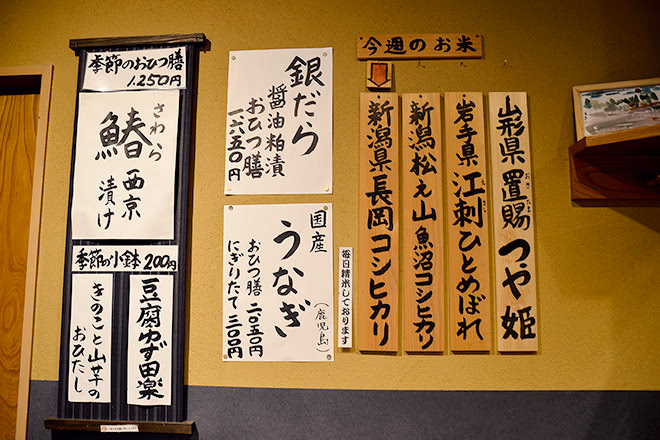 季節のおひつ膳
1,250円
さわら
鰆西京
漬け
季節の小鉢 200円
豆腐ゆず田楽
きのこと山芋の
おひたし
銀だら
醤油粕漬
おひつ膳
一六五〇円
国産
うなぎ
(鹿児島)
おひつ膳 二〇五〇円
にぎりたて 三〇〇円
毎日精米しております
今週のお米
山形県置賜つや姫
おきたま
岩手県江刺ひとめぼれ
えさし
新潟松之山魚沼コシヒカリ
新潟県長岡コシヒカリ